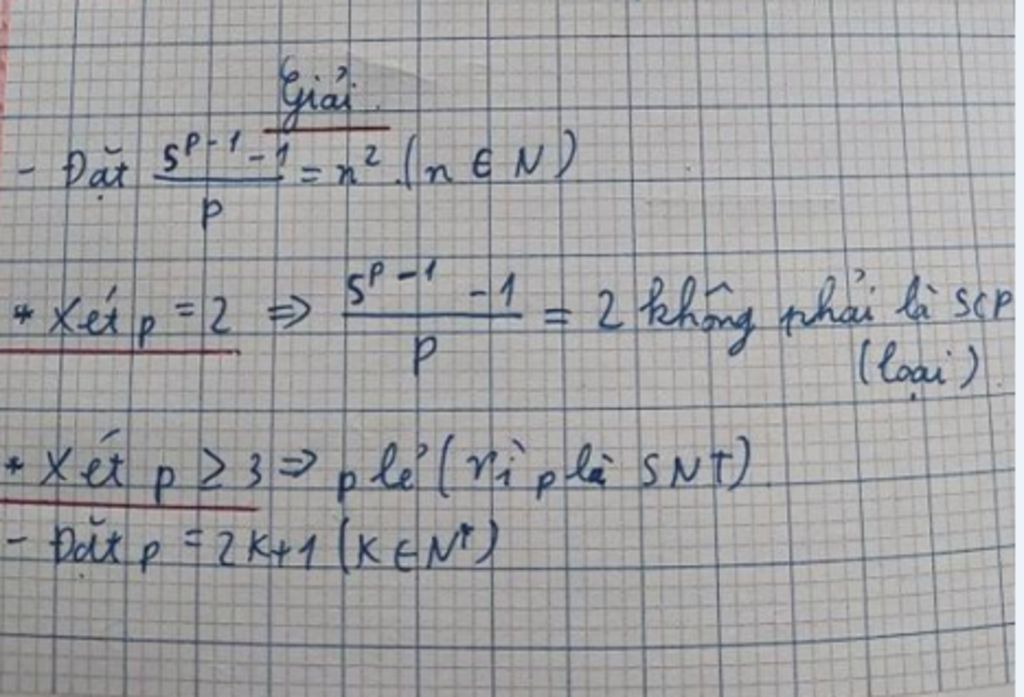 Giải.
- Đặt \frac{5^{p-1}-1}{p} = n^2. (n ∈ N)
* Xét p = 2 => \frac{5^{p-1}-1}{p} = 2 không phải là SCP
(loại).
* Xét p ≥ 3 => p lẻ (vì p là SNT)
- Đặt p = 2K+1 (K ∈ N*)